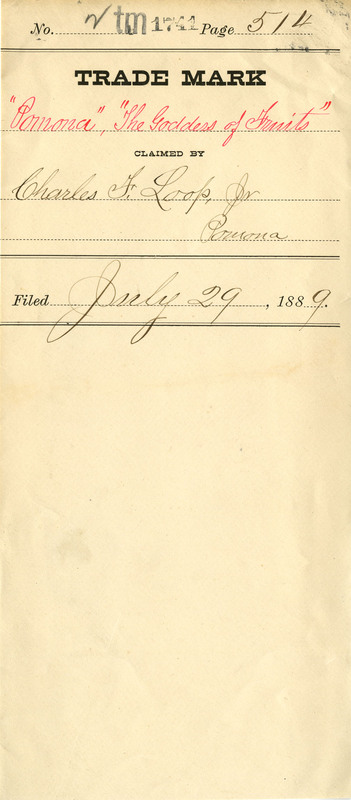 No. ✓ tm 1741 Page 514
TRADE MARK
"Pomona", "The Goddess of Fruits"
CLAIMED BY
Charles F. Loop, Jr
Pomona
Filed July 29, 1889.